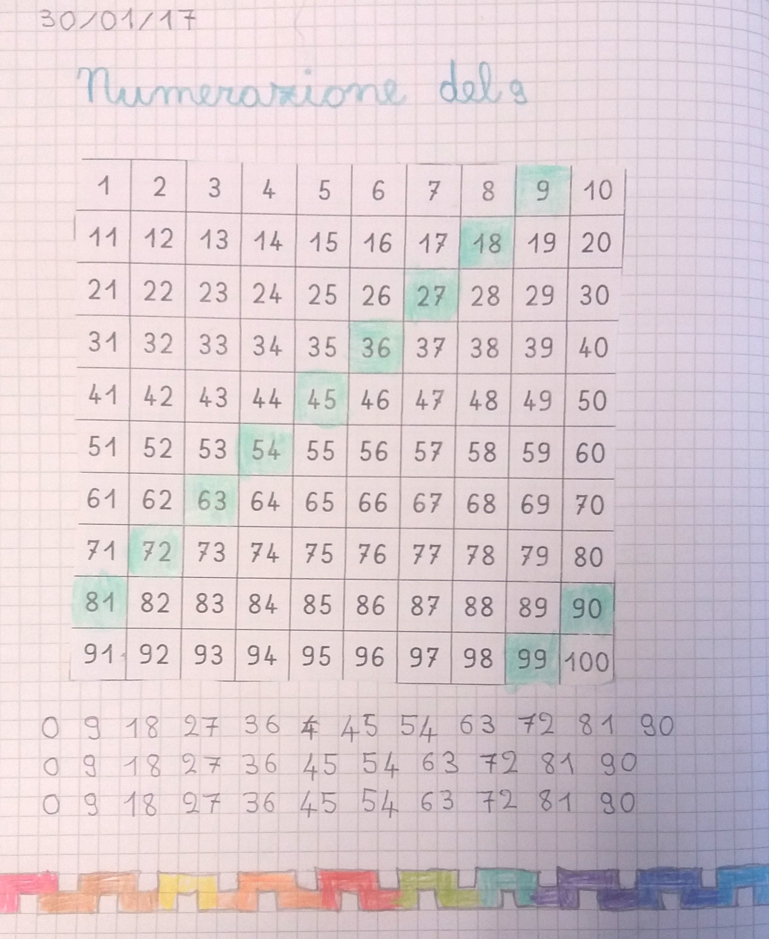 30/01/17
Numerazione del 9
1 2 3 4 5 6 7 8 9 10
11 12 13 14 15 16 17 18 19 20
21 22 23 24 25 26 27 28 29 30
31 32 33 34 35 36 37 38 39 40
41 42 43 44 45 46 47 48 49 50
51 52 53 54 55 56 57 58 59 60
61 62 63 64 65 66 67 68 69 70
71 72 73 74 75 76 77 78 79 80
81 82 83 84 85 86 87 88 89 90
91 92 93 94 95 96 97 98 99 100
0 9 18 27 36 45 54 63 72 81 90
0 9 18 27 36 45 54 63 72 81 90
0 9 18 27 36 45 54 63 72 81 90